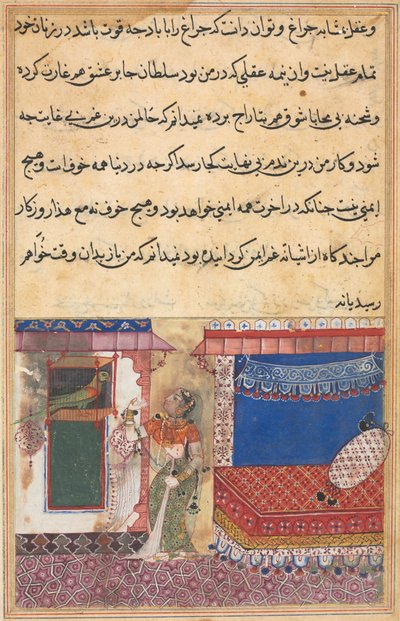 و عقل مشابه چراغ و توان دانست که چراغ را با باد چه قوت باشد در زمان خود
تمام عقل نیست و ان نیمه عقلی که در من بود سلطان جابر عشق هم غارت کرده
و شحنه بی محابا شوق هم بتاراج بوده نمیدانم که حال من درین غم بی غایت چه
شود و کار من درین ندم بی نهایت کجا رسد اکر چه در دنیا همه خوف است و هیچ
ایمنی نیست چنانکه در اخرت همه ایمنی خواهد بود و هیچ خوف نه مع هذا روزکار
مرا چند کاه از غم ایمن کردانیده بود نمیدانم که من باز بدان وقت خواهم
رسید یا نه